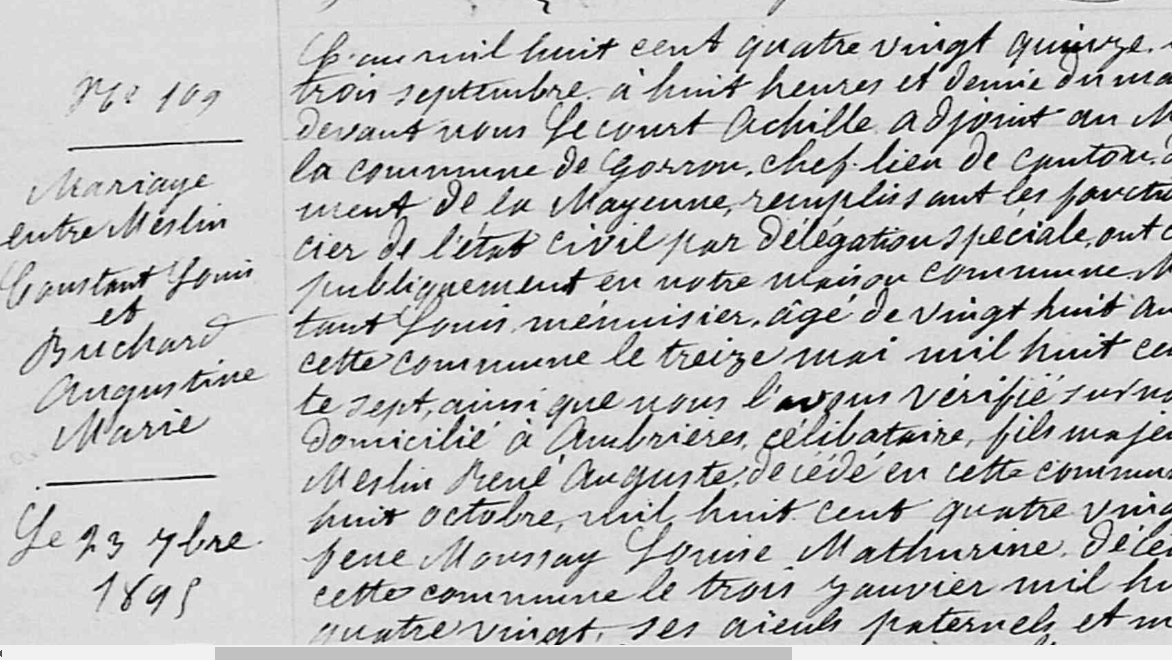 No 109
Mariage
entre Meslin
Constant Louis
et
Buchard
Augustine
Marie
Le 23 7bre
1895
L'an mil huit cent quatre vingt quinze,
trois septembre à huit heures et demie du ma
devant nous Lecourt Achille adjoint au M
la commune de Gorron, chef-lieu de canton, d
ment de la Mayenne, remplissant les fonctio
cier de l'état civil par délégation spéciale, ont c
publiquement en notre maison commune M
tant Louis, menuisier, âgé de vingt huit an
cette commune le treize mai mil huit ce
te sept, ainsi que nous l'avons vérifié sur n
domicilié à Ambrières, célibataire, fils maje
Meslin René Auguste, décédé en cette commun
huit octobre, mil huit cent quatre ving
feue Moussay Louise Mathurine, décéd
cette commune le trois janvier mil hu
quatre vingt, ses aïeuls paternels et m